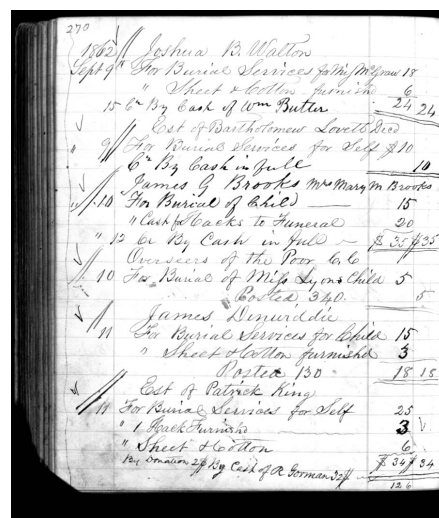 270
1862 Joshua B. Walton
Sept 9 " For Burial Services for Mrs McGraw 18
" Sheet & Cotton furnish 6
15 Cr By Cash of Wm Butler 24 24
Est of Bartholomew Lovett Decd
" 9 For Burial Services for Self $10
Cr By Cash in full 10
James G Brooks Mrs Mary M Brooks
" 10 For Burial of Child — 15
" Cash for Hacks to Funeral 20
" 12 Cr By Cash in full – $35 $35
Overseers of the Poor C C
" 10 For Burial of Miss Lyons Child 5
Posted 340. 5
James
" 11 For Burial Services for Child 15
" Sheet & Cotton furnished 3
Posted 130 18 18
Est of Patrick King
" 11 For Burial Services for Self 25
" 1 Hack Furnishd 3
" Sheet & Cotton 6
By Donation 2$ By Cash of R Gorman 32$ $34 $34
126